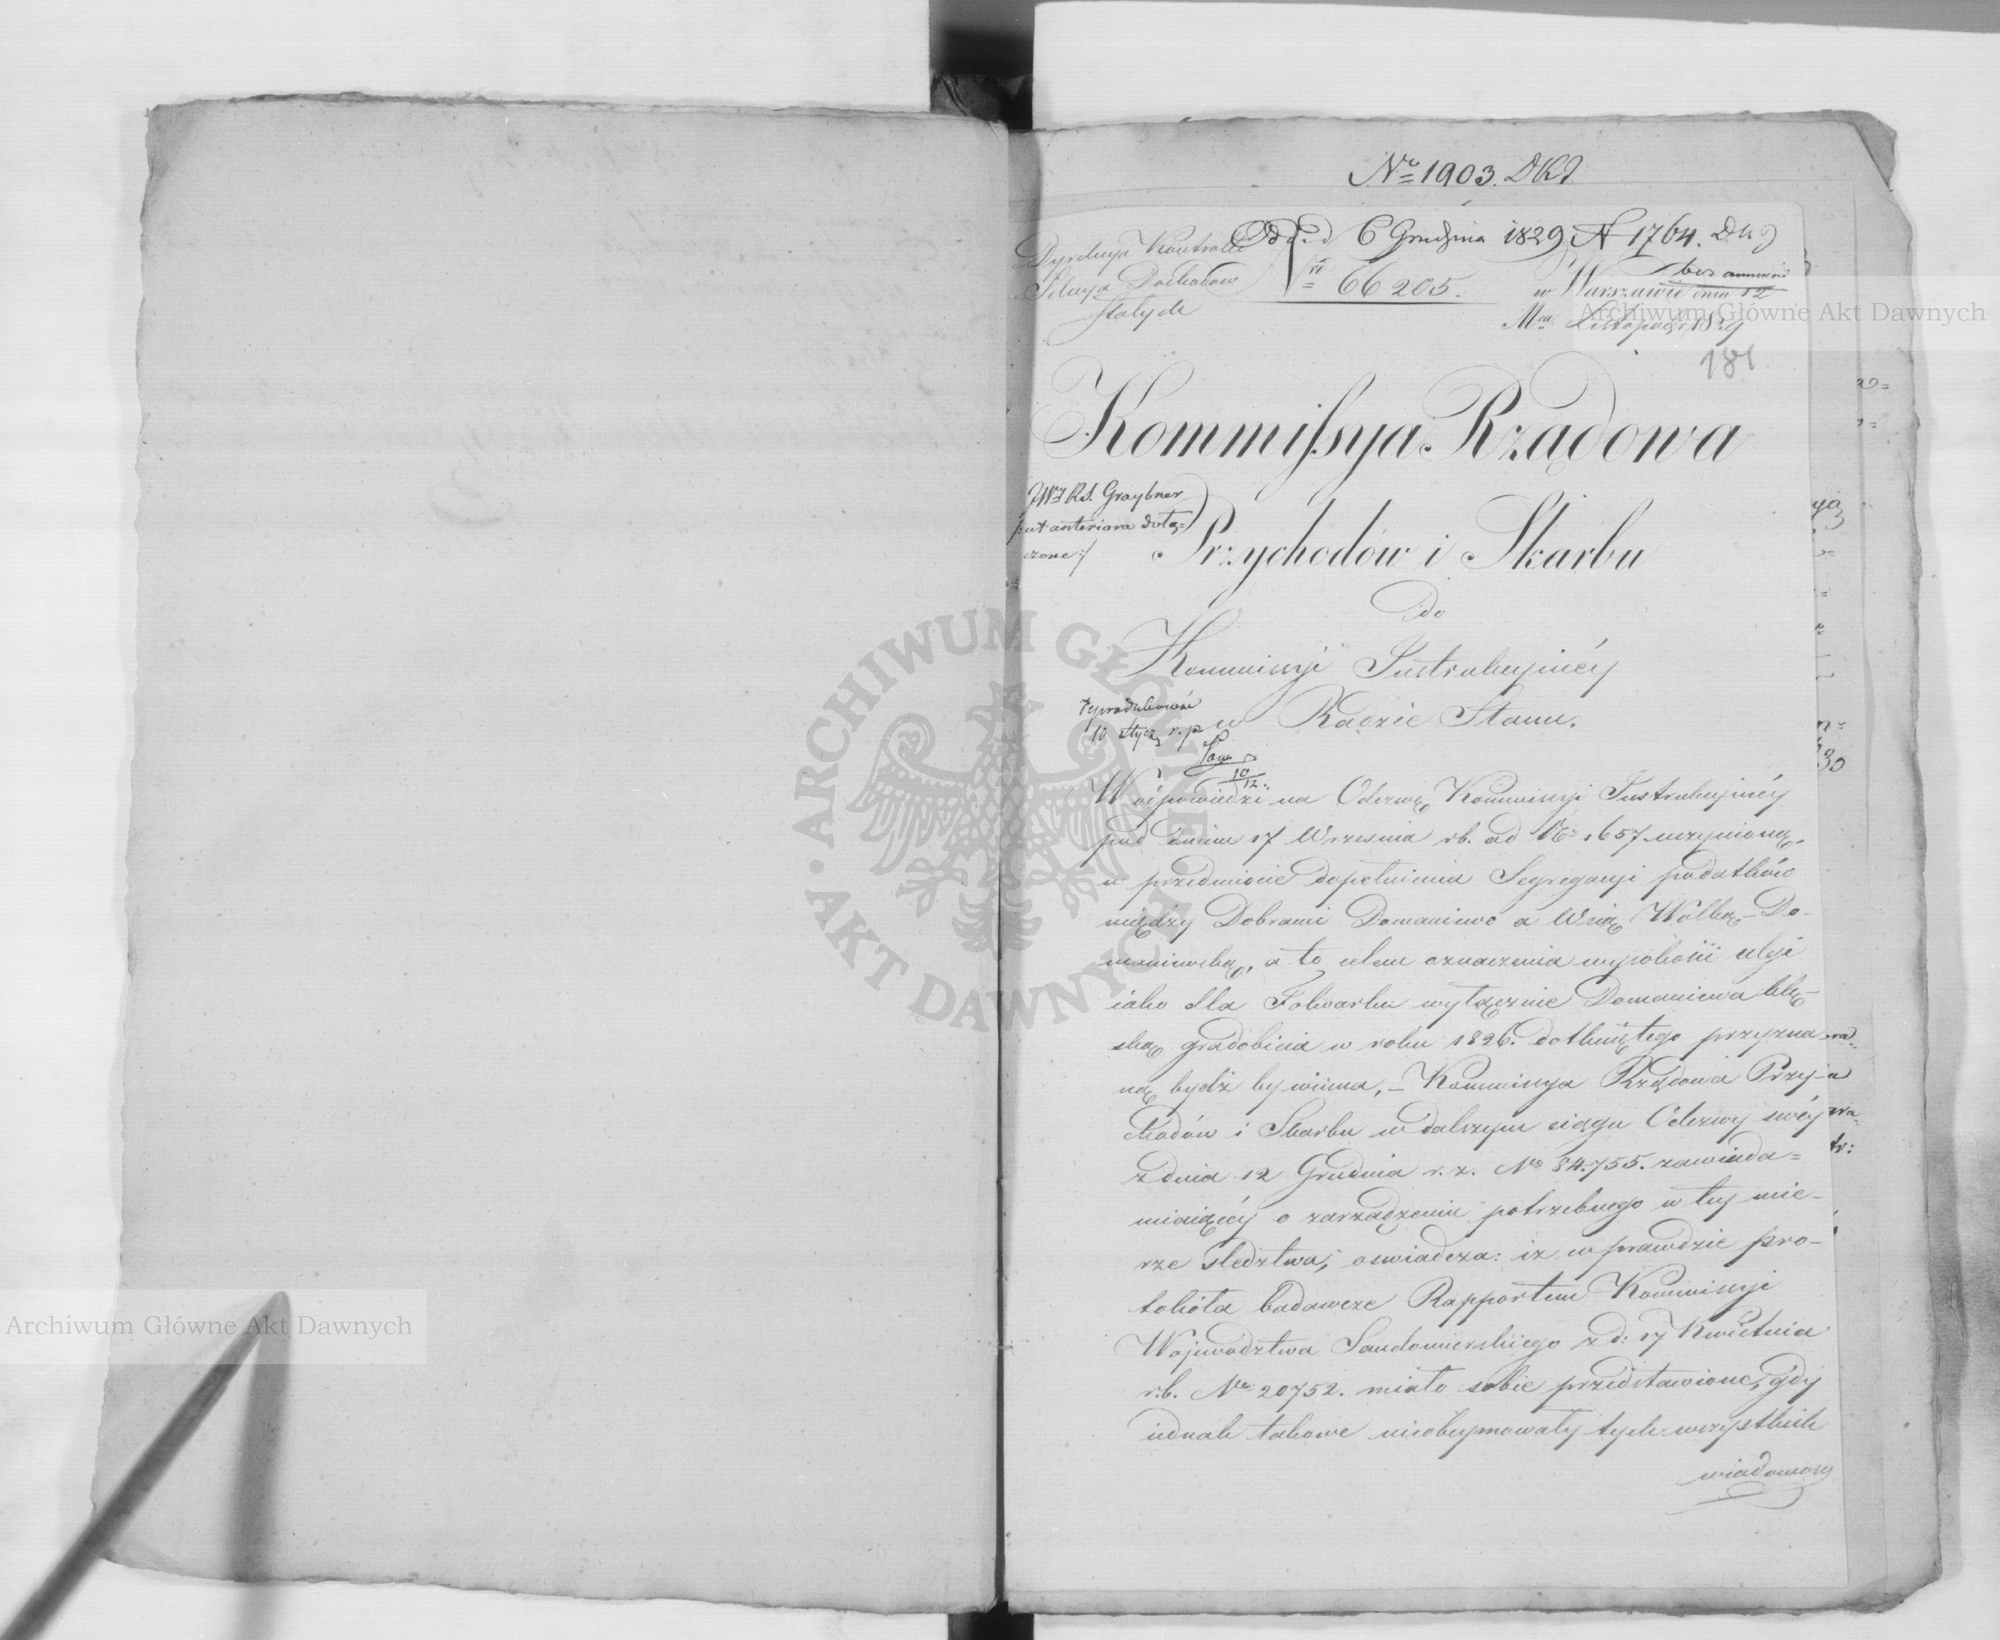 No 1903. DKJ
Odd. d 6 Grudnia 1829 N 1764. DKJ
Dyrekcya Kontrolli
Sekcya Dochodów
stałych
No 66205.
bez annexów
w Warszawie dnia 12
Mca Listopada 1829
181
Kommissya Rządowa
JWy RS. Graybner
put anteriora dołą=
czone:/
Przychodów i Skarbu
do
Kommissyi Instrukcyinéy
w Radzie Stanu.
10 stycz. r. p
10/12.
W odpowiedzi na Odezwę Kommissyi Instrukcyinéy
pod dniem 17 Września rb. ad No 1657 uczynioną,
w przedmiocie dopełnienia Segregacyi podatków
między Dobrami Domaniewo a Wsią Wolką Do-
maniewską, a to celem oznaczenia wysokości ulgi
iako dla Folwarku wyłącznie Domaniewa klę-
ską gradobicia w roku 1826. dotkniętego przyzna
ną bydź by winna, – Kommissya Rządowa Przy-
chodów i Skarbu w dalszym ciągu Odezwy swéy
z dnia 12 Grudnia r. z. No 84.755. zawiada=
miaiącéy o zarządzeniu potrzebnego w tey mie-
rze śledztwa, oświadcza: iż w prawdzie pro-
tokóła badawcze Rapportem Kommissyi
Województwa Sandomierskiego z d: 17 Kwietnia
r.b. No 20752. miało sobie przedstawione, gdy
iednak takowe nieobeymowały tych wszystkich
wiadomości
Archiwum Główne Akt Dawnych
Archiwum Główne Akt Dawnych
ARCHIWUM GŁÓWNE · AKT DAWNYCH ·